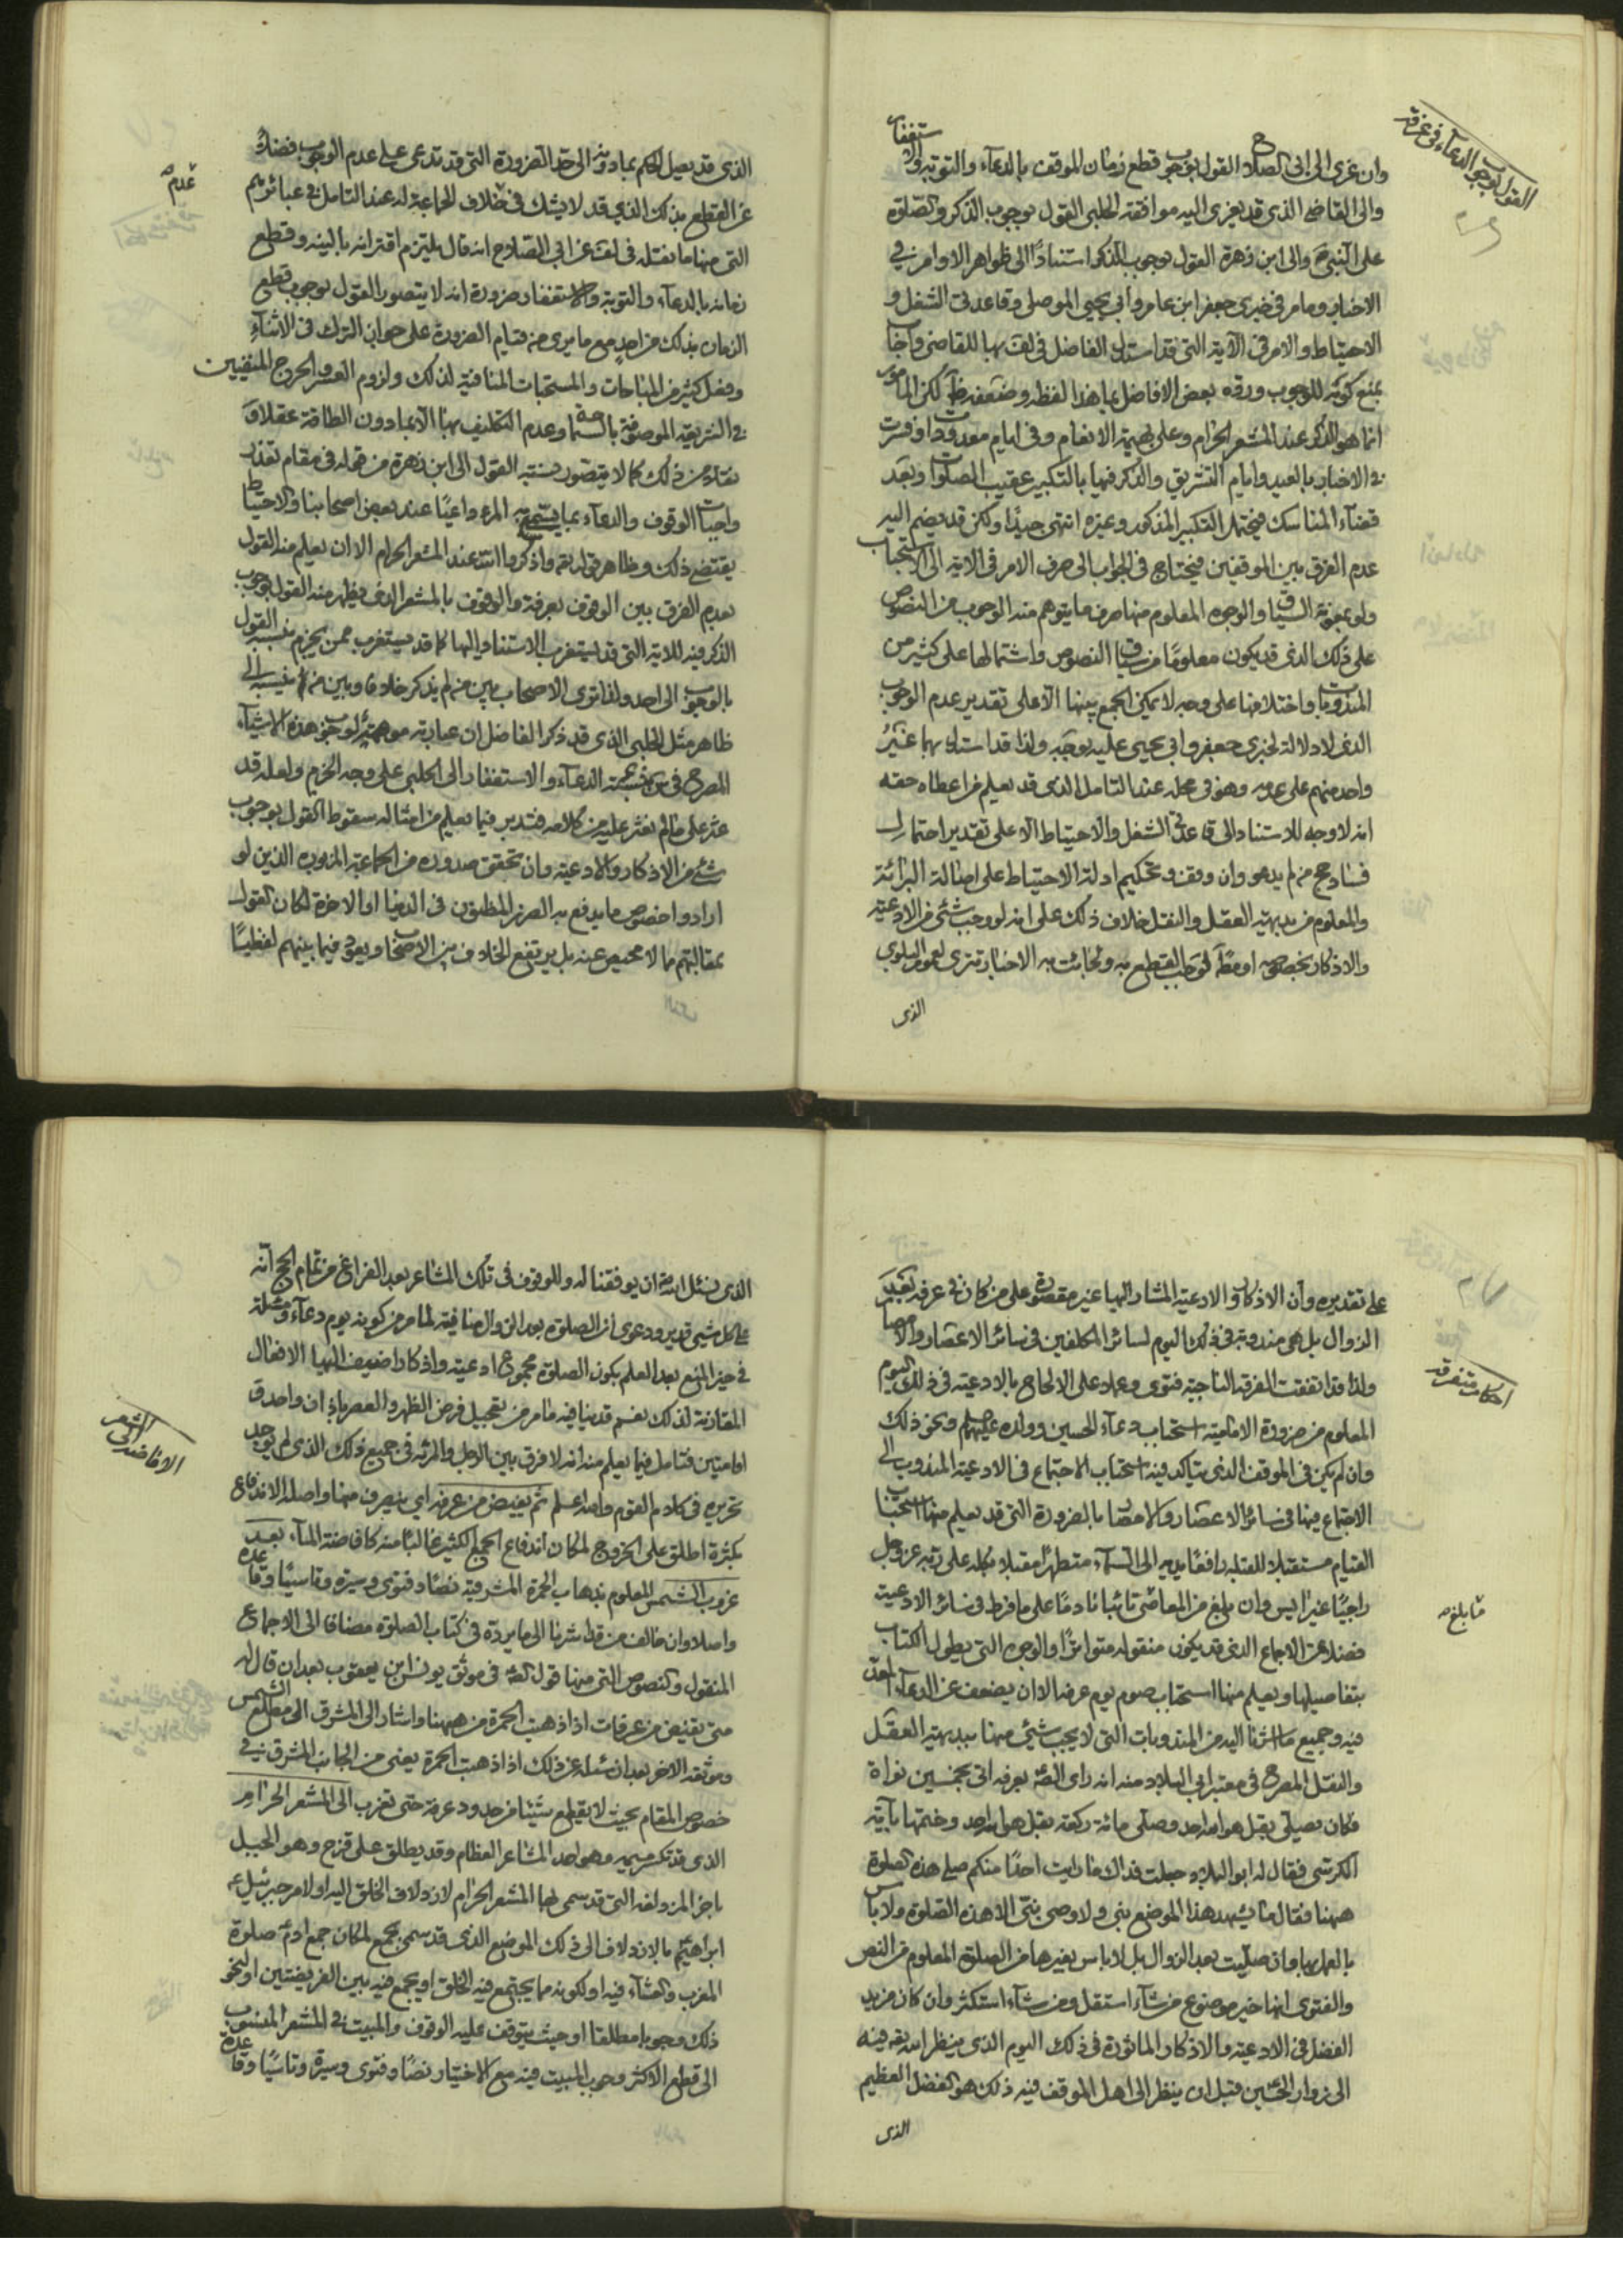 القول بوجوب الدعاء في عرفة
وان عزى الى ابى الصلاح القول بوجوب قطع زمان الموقف بالدعاء والتوبة والاستغفار
والى القاضى الذى قد يعزى اليه موافقة الحلبى القول بوجوب الذكر والصلوة
على النبى ص والى ابن زهرة القول بوجوب الذكر استنادًا الى ظواهر الاوامر في
الاخبار وما مر في خبرى جعفر ابن عامر وابي يحيى الموصلى وقاعدتى الشغل و
الاحتياط والامر في الآية التى قد استدل الفاضل في لف بها للقاضى واجاب
بمنع كونه للوجوب ورده بعض الافاضل بما هذا لفظه وضعفه ظ لكن المأمور
انما هو الذكر عند المشعر الحرام وعلى بهيمة الانعام وفي ايام معدودات وفسرت
في الاخبار بالعيد وايام التشريق والذكر فيها بالتكبير عقيب الصلوات وبعد
قضاء المناسك فيحتمل التكبير المذكور وغيره انتهى جيدًا ولكن قد يضم اليه
عدم الفرق بين الموقفين فيحتاج في الجواب الى صرف الامر في الآية الى الاستحباب
ولو بمعونة السياق والوجوه المعلوم منها صرف ما يتوهم منه الوجوب من النصوص
على ذلك الذى قد يكون معلومًا من سياق النصوص واشتمالها على كثير من
المندوبات واختلافها على وجه لا يمكن الجمع بينها الا على تقدير عدم الوجوب
الذى لا دلالة لخبرى جعفر وابي يحيى عليه بوجه ولذا قد استدل بهما غير
واحد منهم على عدمه وهو في محله عند التامل الذى قد يعلم من اعطاه حقه
انه لا وجه للاستناد الى قاعدتى الشغل والاحتياط الا على تقدير احتمال
فساد حج من لم يدع وان وقف وتحكيم ادلة الاحتياط على اصالة البرائة
والمعلوم من بديهة العقل والنقل خلاف ذلك على انه لو وجب شئ من الادعية
والاذكار بخصوصه او مط لوجب القطع به ولجائت به الاخبار تترى لعموم البلوى
الذى
الذى قد يصل الحكم بما دونه الى حد الضرورة التى قد تدعى على عدم الوجوب فضلًا
عن القطع بذلك الذى قد لا يشك في خلاف الجماعة له عند التامل في عبائرهم
عدم
التى منها ما نقله في لف عن ابي الصلاح انه قال يلتزم اقترانه بالنية وقطع
زمانه بالدعاء والتوبة والاستغفار ضرورة انه لا يتصور القول بوجوب قطع
الزمان بذلك من احد مع ما يرى من قيام الضرورة على جواز الترك في الاثناء
وفعل كثير من المباحات والمستحبات المنافية لذلك ولزوم العسر والحرج المنفيين
في الشريعة الموصوفة بالسماحة وعدم التكليف بها الا بما دون الطاقة عقلًا و
نقلًا من ذلك كما لا يتصور نسبة القول الى ابن زهرة من قوله في مقام تعداد
واجبات الوقوف والدعاء بما يسمى به المرء داعيًا عند بعض اصحابنا والاحتياط
يقتضى ذلك وظاهر قوله تع واذكروا الله عند المشعر الحرام الا ان يعلم منه القول
بعدم الفرق بين الوقوف بعرفة والوقوف بالمشعر الذى يظهر منه القول بوجوب
الذكر فيه للآية التى قد يستغرب الاستناد اليها كما قد يستغرب ممن يجزم بنسبة القول
بالوجوب الى احد ولفا فتوى الاصحاب بين من لم يذكر خلافا وبين من لا ينسبه الى
ظاهر مثل الحلبى الذى قد ذكر الفاضل ان عبارته موهمة لوجوب هذه الاشياء
المصرح في س بنسبة الدعاء والاستغفار الى الحلبى على وجه الجزم ولعله قد
عثر على ما لم نعثر عليه من كلامه فتدبر فيما يعلم من امثاله سقوط القول بوجوب
شئ من الاذكار والادعية وان تحقق صدوره من الجماعة المزبورة الذين لو
ارادوا خصوص ما يدفع به الضرر المظنون في الدنيا او الآخرة لكان القول
بمقالتهم مما لا محيص عنه بل يرتفع الخلاف من الاصحاب ويعود فيما بينهم لفظيًا
على تقديره وان الاذكار والادعية المشار اليها غير مقصورة على من كان في عرفة بعد
الزوال بل هى مندوبة في ذلك اليوم لسائر المكلفين في سائر الاعصار والامصار
احكام متفرقة
ولذا قد اتفقت الفرقة الناجية فتوى وعملا على الالحاح بالادعية في ذلك اليوم
المعلوم من ضرورة الامامية استحباب دعاء الحسين وولده عليهما السلام ونحو ذلك
وان لم يكن في الموقف الذى يتاكد فيه استحباب الاجتماع في الادعية المندوب الى
الاجتماع فيها في سائر الاعصار والامصار بالضرورة التى قد يعلم منها استحباب
القيام مستقبلا للقبلة رافعًا يديه الى السماء متطهرًا مقبلا بكله على ربه عز وجل
راجيًا غير آيس وان بلغ من المعاصى ما بلغ تائبًا نادمًا على ما فرط في سائر الادعية
فضلا عن الاجماع الذى قد يكون منقوله متواترًا والوجوه التى يطول الكتاب
بتفاصيلها ويعلم منها استحباب صوم يوم عرفة الا ان يضعف عن الدعاء
فيه وجميع ما اشرنا اليه من المندوبات التى لا يجب شئ منها ببديهة العقل
والنقل المصرح في معتبر ابي البلاد منه انه راى ابا عبد الله بعرفة اتى بخمسين نواة
فكان يصلى بقل هو الله احد وصلى مائة ركعة بقل هو الله احد وختمها بآية
الكرسى فقال له ابو البلاد جعلت فداك ما رايت احدًا منكم صلى هذه الصلوة
ههنا فقال ما يشهد هذا الموضع نبى ولا وصى نبى الا هذه الصلوة ولا باس
بالعمل بها وان صليت بعد الزوال بل لا باس بغيرها من الصلوة المعلوم من النص
والفتوى انها خير موضوع من شآء استقل ومن شآء استكثر وان كان مزيد
الفضل في الادعية والاذكار الماثورة في ذلك اليوم الذى ينظر الله تع فيه
الى زوار الحسين قبل ان ينظر الى اهل الموقف فيه ذلك هو الفضل العظيم
الذى
الذى نسئل الله ان يوفقنا له وللوقوف في تلك المشاعر بعد الفراغ من تمام الحج انه
على كل شئ قدير ودعوى ان الصلوة بعد الزوال منافية لما مر من كونه يوم دعاء ومسئلة
في حيز المنع بعد العلم بكون الصلوة مجموع ادعية واذكار اضيف اليها الافعال
المقارنة لذلك نعم قد ينافيه ما مر من تعجيل فرض الظهر والعصر باذان واحد و
اقامتين فتامل فيما يعلم منه انه لا فرق بين الرجل والمرئة في جميع ذلك الذى لم يوجد
الافاضة الى المشعر
تحريره في كلام القوم والله اعلم ثم يفيض من عرفة اى ينصرف منها واصله الاندفاع
بكثرة اطلق على الخروج لمكان اندفاع الجمع الكثير غالبًا منه كافاضة الماء بعد
غروب الشمس المعلوم بذهاب الحمرة المشرقية نصًا وفتوى وسيرة وتاسيًا وقاعدة
واصلا وان خالف من قد اشرنا الى ما يرده في كتاب الصلوة مضافا الى الاجماع
المنقول والنصوص التى منها قوله في موثق يونس ابن يعقوب بعد ان قال له
متى نفيض من عرفات اذا ذهبت الحمرة من ههنا واشار الى المشرق الى مطلع الشمس
وموثقه الآخر بعد ان سئله عن ذلك اذا ذهبت الحمرة يعنى من الجانب المشرق في
خصوص المقام بحيث لا يقطع شيئا من حدود عرفة حتى تغرب الى المشعر الحرام
الذى قد تكرر سيره وهو احد المشاعر العظام وقد يطلق على قزح وهو الجبل
باخر المزدلفة التى قد سمى بها المشعر الحرام لازدلاف الخلق اليه او لامر جبرئيل ع
ابراهيم بالازدلاف الى ذلك الموضع الذى قد سمى بجمع لمكان جمع آدم صلوة
المغرب والعشآء فيه او لكونه مما يجتمع فيه الخلق او يجمع فيه بين الفريضتين او لنحو
ذلك وجوبا مطلقا او حيث يتوقف عليه الوقوف والمبيت في المشعر المنسوب
الى قطع الاكثر وجوب المبيت فيه مع الاختيار نصًا وفتوى وسيرة وتاسيًا وقاعدة